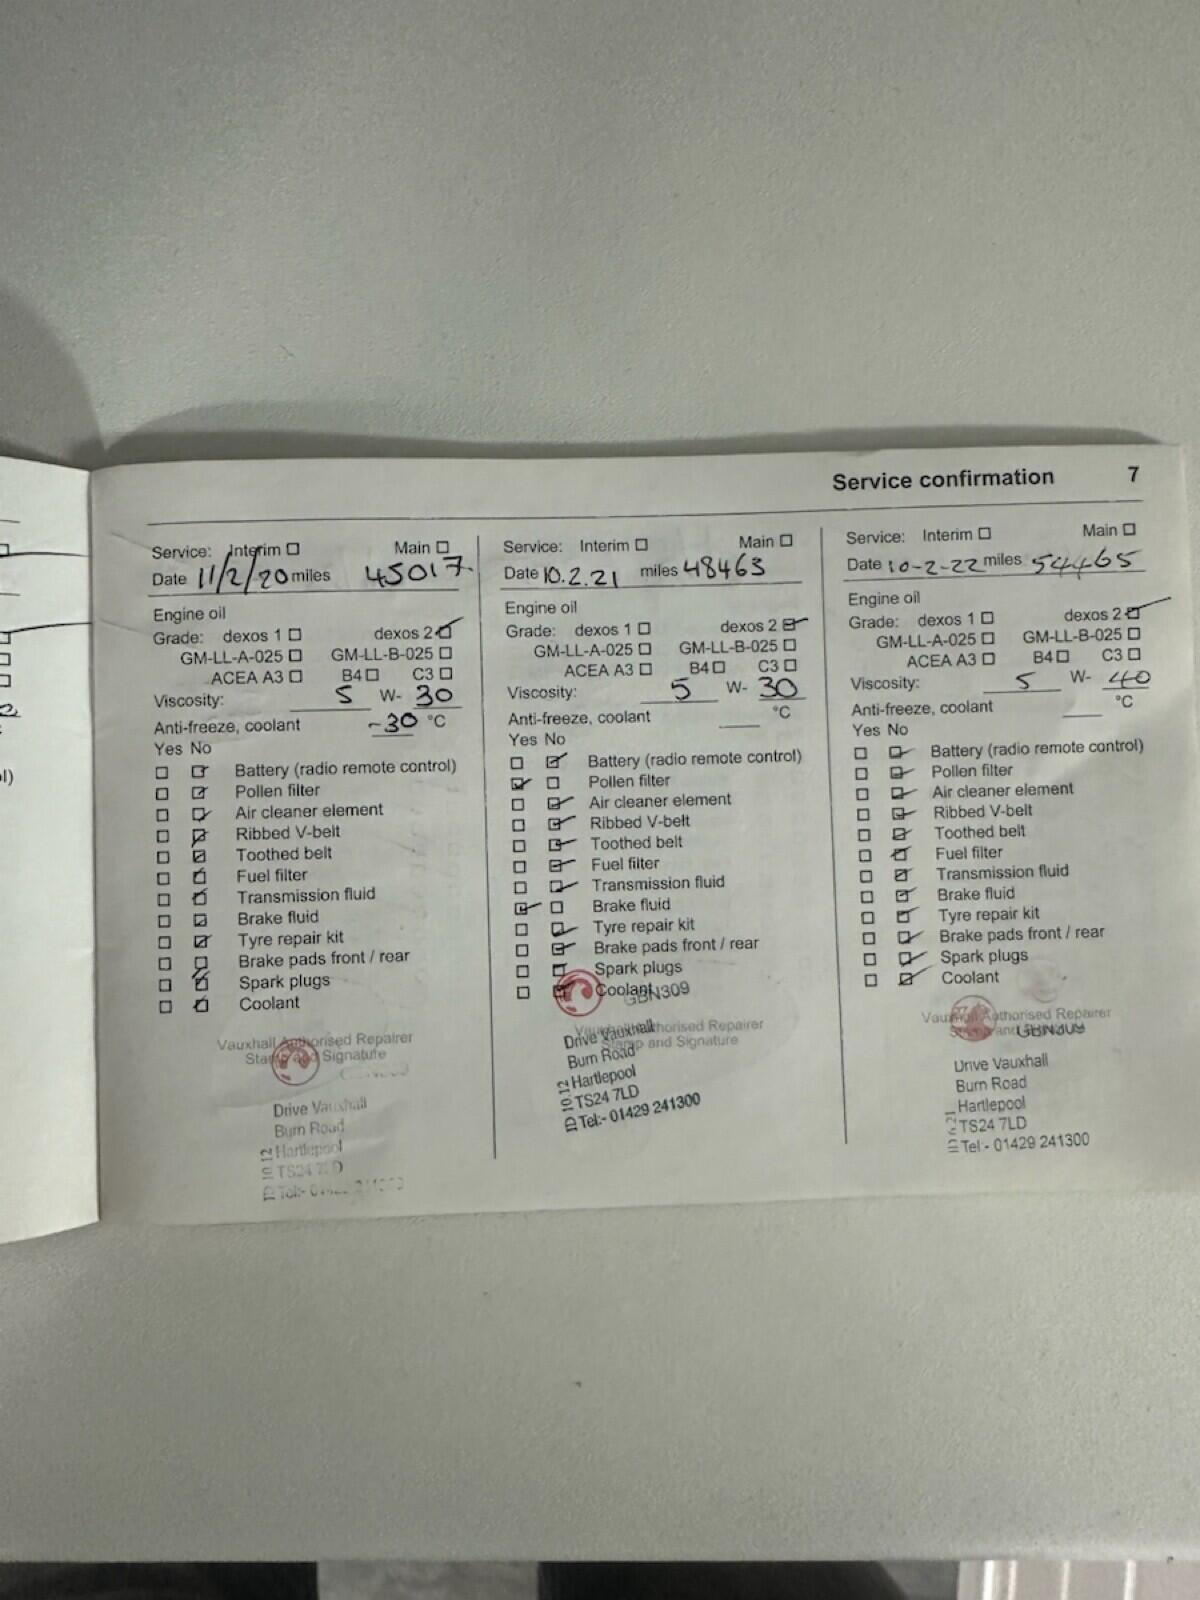 Service confirmation 7
Service: Interim Main
Date 11/2/20 miles 45017.
Engine oil
Grade: dexos 1 dexos 2
GM-LL-A-025 GM-LL-B-025
ACEA A3 B4 C3
Viscosity: 5 W- 30
Anti-freeze, coolant -30 °C
Yes No
Battery (radio remote control)
Pollen filter
Air cleaner element
Ribbed V-belt
Toothed belt
Fuel filter
Transmission fluid
Brake fluid
Tyre repair kit
Brake pads front / rear
Spark plugs
Coolant
Vauxhall Authorised Repairer
Stamp and Signature
Drive Vauxhall
Burn Road
Hartlepool
TS24 7LD
10.12
Service: Interim Main
Date 10.2.21 miles 48463
Engine oil
Grade: dexos 1 dexos 2
GM-LL-A-025 GM-LL-B-025
ACEA A3 B4 C3
Viscosity: 5 W- 30
Anti-freeze, coolant °C
Yes No
Battery (radio remote control)
Pollen filter
Air cleaner element
Ribbed V-belt
Toothed belt
Fuel filter
Transmission fluid
Brake fluid
Tyre repair kit
Brake pads front / rear
Spark plugs
Coolant
GBN309
Vauxhall Authorised Repairer
Stamp and Signature
Drive Vauxhall
Burn Road
Hartlepool
TS24 7LD
Tel:- 01429 241300
ID 10.12
Service: Interim Main
Date 10-2-22 miles 54465
Engine oil
Grade: dexos 1 dexos 2
GM-LL-A-025 GM-LL-B-025
ACEA A3 B4 C3
Viscosity: 5 W- 40
Anti-freeze, coolant °C
Yes No
Battery (radio remote control)
Pollen filter
Air cleaner element
Ribbed V-belt
Toothed belt
Fuel filter
Transmission fluid
Brake fluid
Tyre repair kit
Brake pads front / rear
Spark plugs
Coolant
Vauxhall Authorised Repairer
Stamp and
Drive Vauxhall
Burn Road
Hartlepool
TS24 7LD
Tel:- 01429 241300